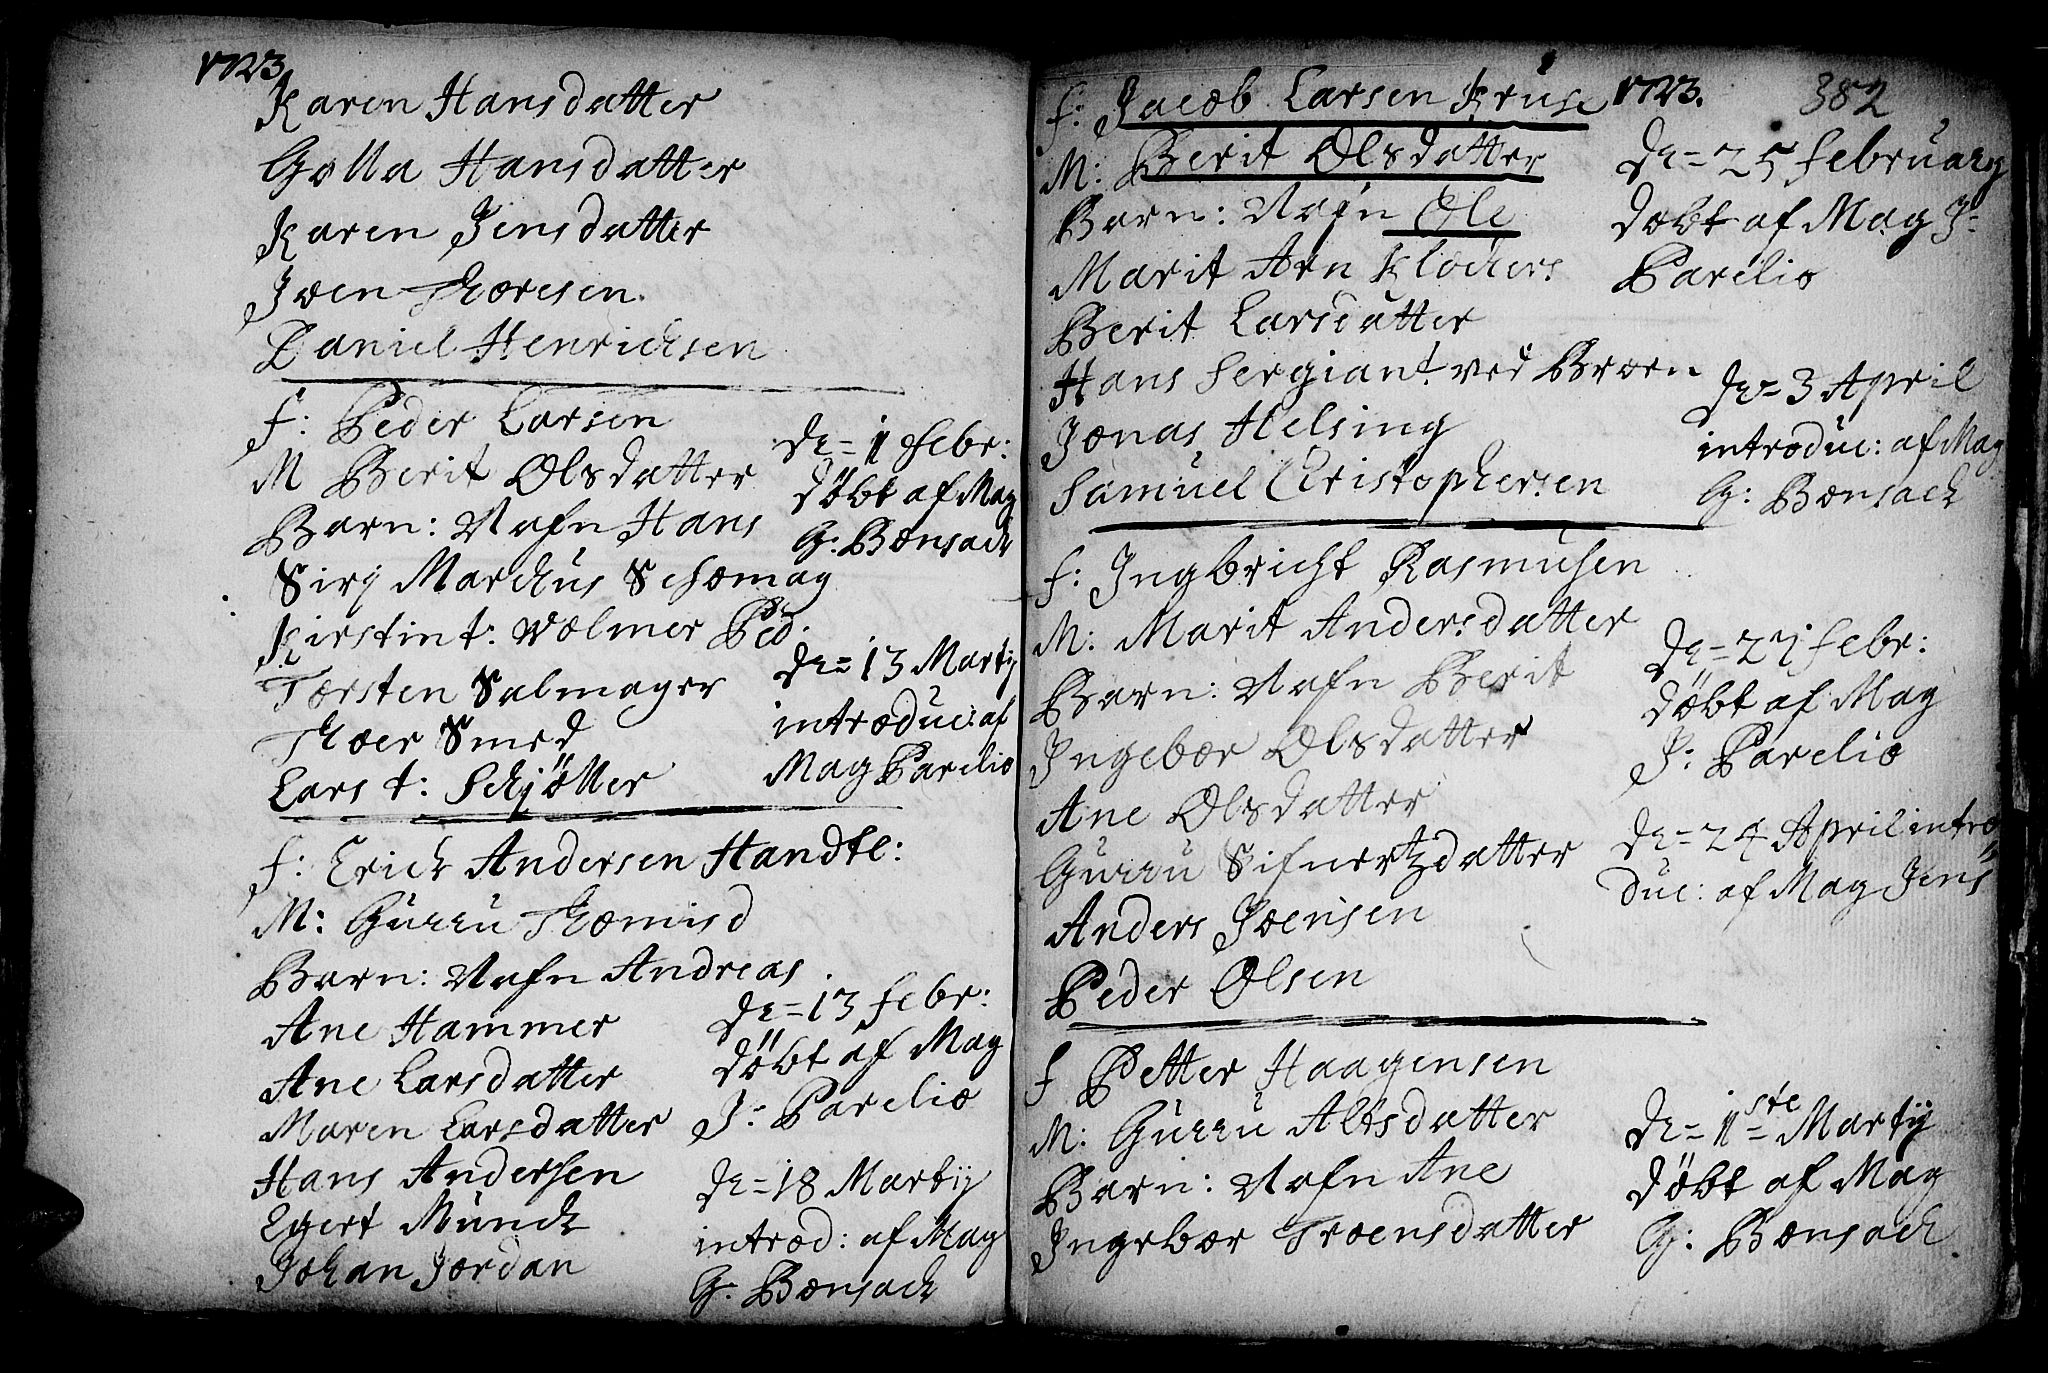 1723.
Karen Hansdatter
Golla Hansdatter
Karen Jensdatter
Joen Thoresen
Daniel Henrichsen
f: Peder Larsen
M Berit Olsdatter
Barn: Nafn Hans
Sirj Marchus Schomag
Kirstin t: Wolmer Ped.
Torsten Salmager
Thoer Smed
Lars t: Schjötter
De = 11 Febr:
döbt af Mag
G: Bonsach
De = 13 Martij
introduc: af
Mag Parelio
f: Erich Andersen Handtl:
M: Gurru Thomisd
Barn: Nafn Andreas.
Ane Hammer
Ane Larsdatter
Maren Larsdatter
Hans Andersen
Egert Munch
Johan Jordan
De = 13 Febr:
döbt af Mag
J: Parelio
De = 18 Martij
introd: af Mag
G: Bonsach
1723.
382
f: Jacob Larsen Kruse
M: Berit Olsdatter
Barn: Nafn Ole
Marit Arn Klochers
Berit Larsdatter
Hans Sergiant ved Broen
Jonas Helsing
Samuel Christophersen
De = 25 February
döbt af Mag J:
Parelio
De = 3 April
introduc: af Mag
G: Bonsach
f: Ingbricht Rasmusen
M: Marit Andersdatter
Barn: Nafn Berit
Ingebor Olsdatter
Ane Olsdatter
Gurru Sifuertzdatter
Anders Joensen
Peder Olsen
De = 27 Febr:
döbt af Mag
J: Parelio
De = 24 April intro
duc: af Mag Jens
f Petter Haagensen
M: Gurru Alesdatter
Barn: Nafn Ane
Ingebor Troensdatter
De = 11 ste = Martij
döbt af Mag
G: Bonsach